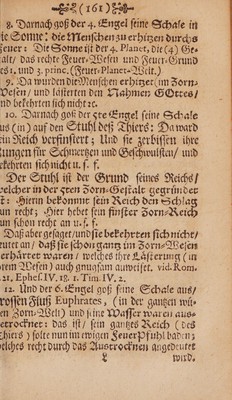 ( 161 )
8. Darnach goß der 4. Engel seine Schale in
ie Sonne: die Menschen zu erhitzen durchs
Feuer: Die Sonne ist der 4. Planet, die (4) Ge-
alt/ das rechte Feuer-Wesen und Feuer-Grund
es 1. und 3. princ. (Feuer-Planet-Welt.)
9. Da wurden die Menschen erhitzet/ im Zorn-
Wesen/ und lästerten den Nahmen GOttes/
nd bekehrten sich nicht ꝛc.
10. Darnach goß der 5te Engel seine Schale
us (in) auf den Stuhl deß Thiers: Da ward
ein Reich verfinstert; Und sie zerbissen ihre
Zungen für Schmertzen und Geschwulsten/ und
ekehrten sich nicht u. s. f.
Der Stuhl ist der Grund seines Reichs/
welcher in der 5ten Zorn-Gestalt gegründet
st: Hierin bekommt sein Reich den Schlag
un recht; Hier hebet sein finster Zorn-Reich
un schon recht an u. s. f.
Daß aber gesaget/ und sie bekehrten sich nicht/
eutet an/ daß sie schon gantz im Zorn-Wesen
erhärtet waren/ welches ihre Lästerung (in
rem Wesen) auch gnugsam ausweiset. vid. Rom.
21. Ephes. IV. 18. 1. Tim. IV. 2.
12. Und der 6. Engel goß seine Schale aus/
rossen Fluß Euphrates, (in der gantzen wü-
en Zorn-Welt) und seine Wasser waren aus-
etrocknet: das ist/ sein gantzes Reich (des
hiers) solte nun im ewigen Feuer Pfuhl baden;
elches recht durch das Austrocknen angedeutet
L wird.